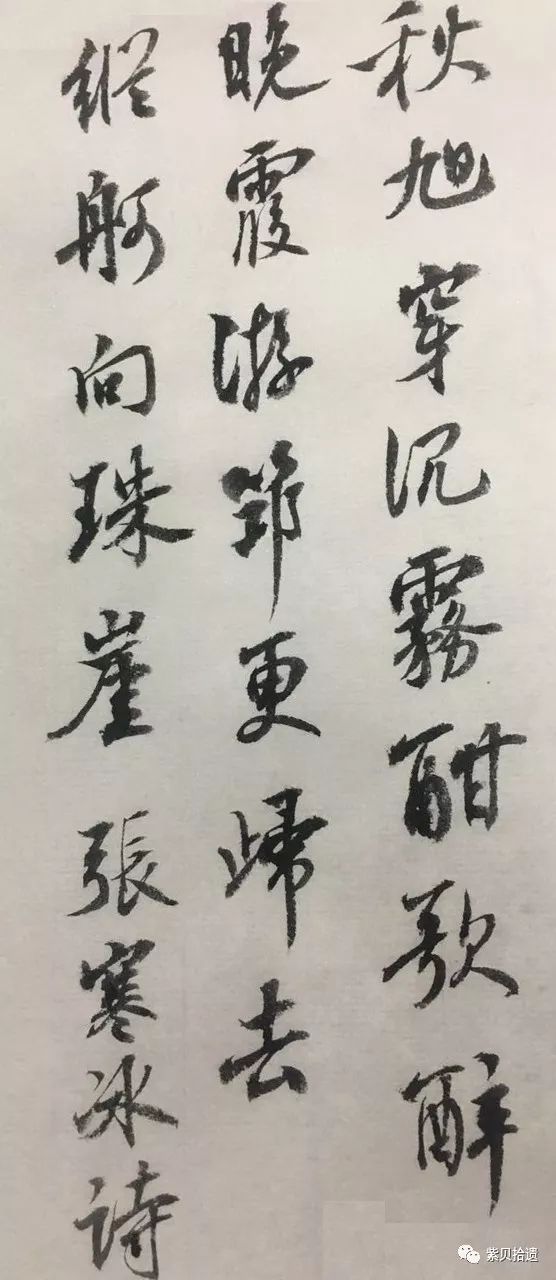 秋旭穿沉霧酣歌醉
晚霞游筇更歸去
縱舸向珠崖 張寒冰詩
紫贝拾遗